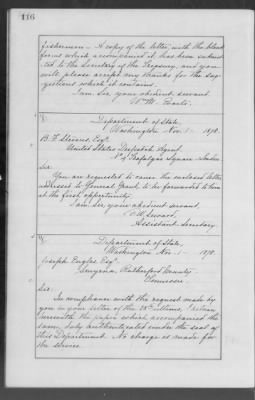 116
fishermen — A copy of the letter, with the blank
forms which accompanied it has been submit-
ted to the Secretary of the Treasury, and you
will please accept my thanks for the sug-
gestions which it contains.
I am, Sir, your obedient servant
Wm M. Evarts.
Department of State,
Washington Nov. 1 — 1878.
B. F. Stevens, Esq.
United States Despatch Agent
No 4 Trafalgar Square London
Sir:
You are requested to cause the enclosed letter
addressed to General Grant, to be forwarded to him at
the first opportunity.
I am, Sir, your obedient servant,
F. W. Seward.
Assistant Secretary
Department of State,
Washington Nov. 1 — 1878.
Joseph Esq.
Smyrna, Rutherford County
Tennessee.
Sir:
In compliance with the request made by
you in your letter of the 28th ultimo, I return
herewith the paper which accompanied the
same, duly authenticated under the seal of
this Department. No charge is made for
the service.